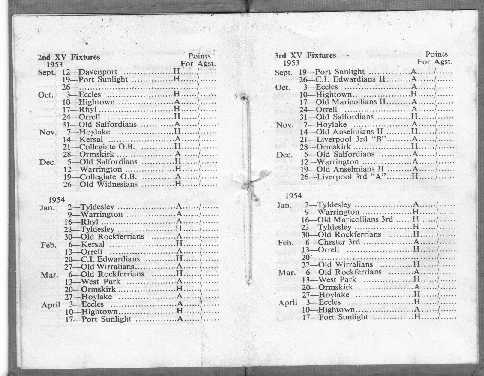 2nd XV Fixtures Points
1953 For Agst.
Sept. 12—Davenport H
19—Port Sunlight H
26
Oct. 3—Eccles H
10—Hightown A
17—Rhyl H
24—Orrell H
31—Old Salfordians A
Nov. 7—Hoylake H
14—Kersal A
21—Collegiate O.B. H
28—Ormskirk A
Dec. 5—Old Salfordians H
12—Warrington H
19—Collegiate O.B. A
26—Old Widnesians H
1954
Jan. 2—Tyldesley A
9—Warrington A
16—Rhyl A
23—Tyldesley H
30—Old Rockferrians A
Feb. 6—Kersal H
13—Orrell A
20—C.I. Edwardians H
27—Old Wirralians A
Mar. 6—Old Rockferrians H
13—West Park A
20—Ormskirk H
27—Hoylake A
April 3—Eccles A
10—Hightown H
17—Port Sunlight A
3rd XV Fixtures Points
1953 For Agst.
Sept. 19—Port Sunlight A
26—C.I. Edwardians II A
Oct. 3—Eccles A
10—Hightown H
17—Old Maricollians II A
24—Orrell A
31—Old Salfordians H
Nov. 7—Hoylake A
14—Old Anselmians II H
21—Liverpool 3rd "B" A
28—Ormskirk H
Dec. 5—Old Salfordians A
12—Warrington A
19—Old Anselmians II A
26—Liverpool 3rd "A" H
1954
Jan. 2—Tyldesley A
9—Warrington H
16—Old Maricollians 3rd H
23—Tyldesley H
30—Old Rockferrians H
Feb. 6—Chester 3rd A
13—Orrell H
20
27—Old Wirralians H
Mar. 6—Old Rockferrians A
13—West Park H
20—Ormskirk A
27—Hoylake H
April 3—Eccles H
10—Hightown A
17—Port Sunlight H